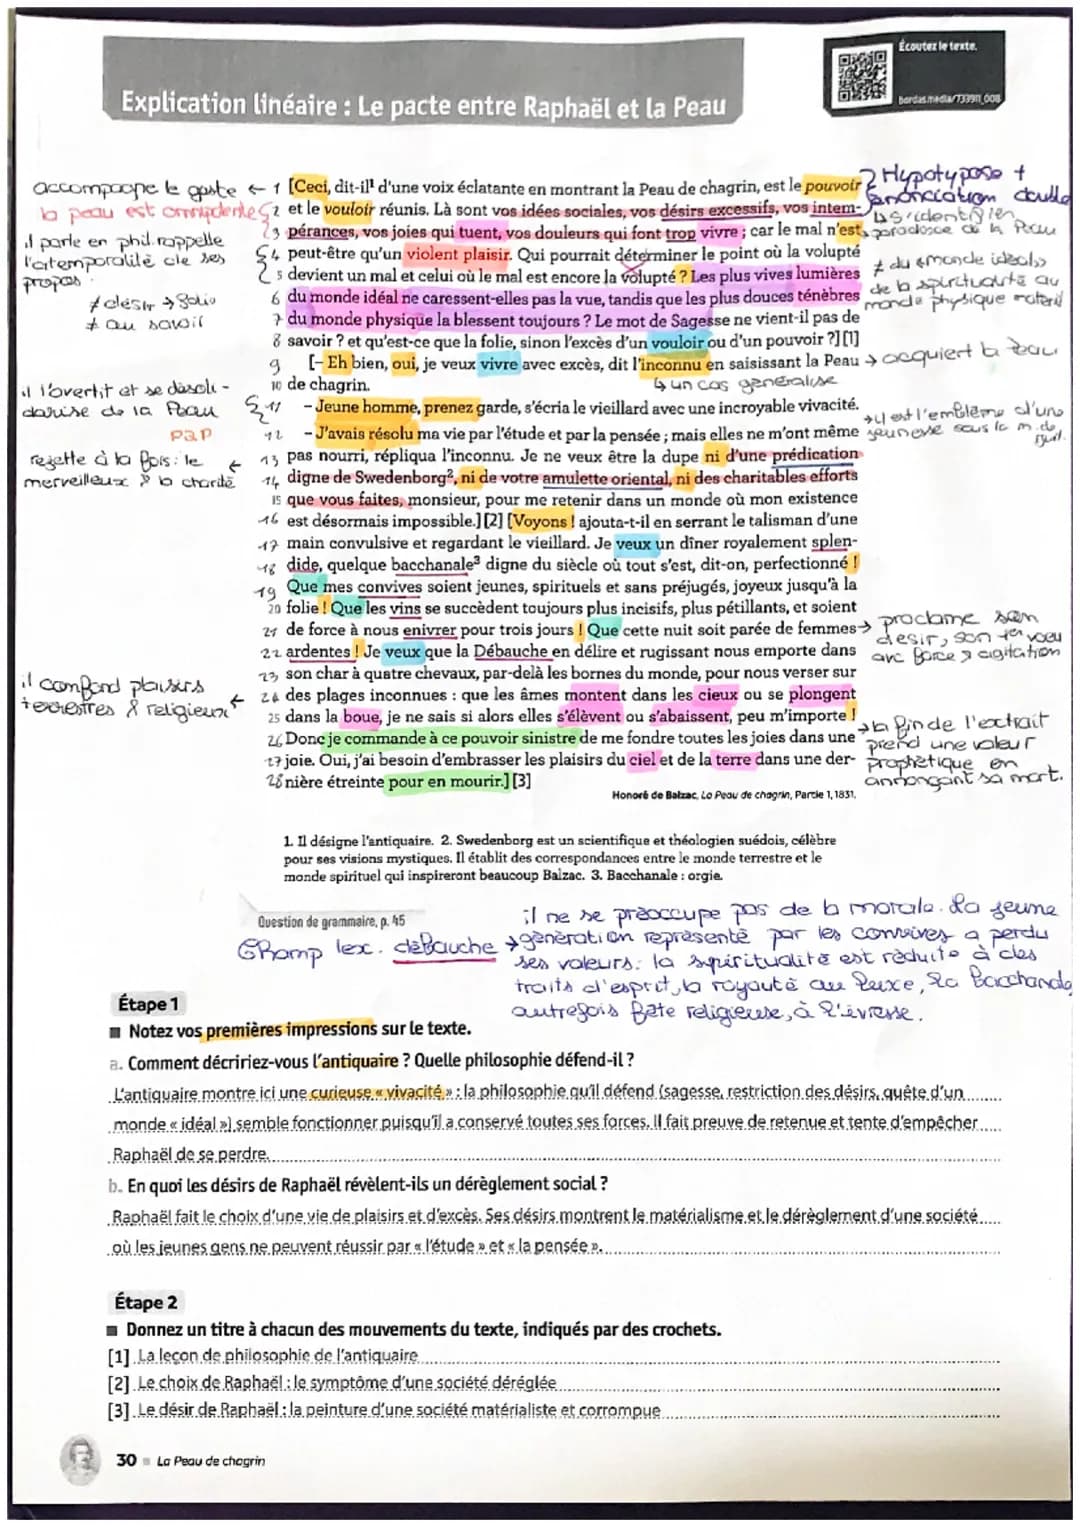 Écoutez le texte.
bordas.media/733911_008
Explication linéaire : Le pacte entre Raphaël et la Peau
accompagne le geste ← 1 [Ceci, dit-il¹ d'une voix éclatante en montrant la Peau de chagrin, est le pouvoir
Hypotypose +
énonciation double
la peau est omnipotente 2 et le vouloir réunis. Là sont vos idées sociales, vos désirs excessifs, vos intem-
↳ s'identifien
il parle en phil. rappelle
3 pérances, vos joies qui tuent, vos douleurs qui font trop vivre ; car le mal n'est
paradoxe de la Peau
l'atemporalité de ses
4 peut-être qu'un violent plaisir. Qui pourrait déterminer le point où la volupté
propos
5 s devient un mal et celui où le mal est encore la volupté ? Les plus vives lumières
≠ du «monde idéal»
de la spiritualité au
≠ désir → folie
6 du monde idéal ne caressent-elles pas la vue, tandis que les plus douces ténèbres
monde physique matériel
≠ au savoir
7 du monde physique la blessent toujours ? Le mot de Sagesse ne vient-il pas de
8 savoir ? et qu'est-ce que la folie, sinon l'excès d'un vouloir ou d'un pouvoir ?] [1]
9 [– Eh bien, oui, je veux vivre avec excès, dit l'inconnu en saisissant la Peau → acquiert la Peau
10 de chagrin.
↳ un cas généralisé
il l'avertit et se désoli-
darise de la Peau
11 – Jeune homme, prenez garde, s'écria le vieillard avec une incroyable vivacité.
PaP
→ il est l'emblème d'une
jeunesse sous la m. de
juil.
12 – J'avais résolu ma vie par l'étude et par la pensée ; mais elles ne m'ont même
rejette à la fois : le ←
merveilleux & la charité
13 pas nourri, répliqua l'inconnu. Je ne veux être la dupe ni d'une prédication
14 digne de Swedenborg², ni de votre amulette oriental, ni des charitables efforts
15 que vous faites, monsieur, pour me retenir dans un monde où mon existence
16 est désormais impossible.] [2] [Voyons ! ajouta-t-il en serrant le talisman d'une
17 main convulsive et regardant le vieillard. Je veux un dîner royalement splen-
18 dide, quelque bacchanale³ digne du siècle où tout s'est, dit-on, perfectionné !
19 Que mes convives soient jeunes, spirituels et sans préjugés, joyeux jusqu'à la
20 folie ! Que les vins se succèdent toujours plus incisifs, plus pétillants, et soient
21 de force à nous enivrer pour trois jours ! Que cette nuit soit parée de femmes →
proclame son
désir, son 1er voeu
avc force & agitation
22 ardentes ! Je veux que la Débauche en délire et rugissant nous emporte dans
23 son char à quatre chevaux, par-delà les bornes du monde, pour nous verser sur
il confond plaisirs
terrestres & religieux ←
24 des plages inconnues : que les âmes montent dans les cieux ou se plongent
25 dans la boue, je ne sais si alors elles s'élèvent ou s'abaissent, peu m'importe !
→ la fin de l'extrait
prend une valeur
prophétique en
annonçant sa mort.
26 Donc je commande à ce pouvoir sinistre de me fondre toutes les joies dans une
27 joie. Oui, j'ai besoin d'embrasser les plaisirs du ciel et de la terre dans une der-
28 nière étreinte pour en mourir.] [3]
Honoré de Balzac, La Peau de chagrin, Partie 1, 1831.
1. Il désigne l'antiquaire. 2. Swedenborg est un scientifique et théologien suédois, célèbre
pour ses visions mystiques. Il établit des correspondances entre le monde terrestre et le
monde spirituel qui inspireront beaucoup Balzac. 3. Bacchanale : orgie.
Question de grammaire, p. 45
Champ lex. débauche →
il ne se préoccupe pas de la morale. La jeune
génération représenté par les convives a perdu
ses valeurs: la spiritualité est réduite à des
traits d'esprit, la royauté au luxe, la Bacchanale,
autrefois fête religieuse, à l'ivresse.
Étape 1
Notez vos premières impressions sur le texte.
a. Comment décririez-vous l'antiquaire ? Quelle philosophie défend-il ?
L'antiquaire montre ici une curieuse « vivacité » : la philosophie qu'il défend (sagesse, restriction des désirs, quête d'un
monde « idéal ») semble fonctionner puisqu'il a conservé toutes ses forces. Il fait preuve de retenue et tente d'empêcher
Raphaël de se perdre.
b. En quoi les désirs de Raphaël révèlent-ils un dérèglement social ?
Raphaël fait le choix d'une vie de plaisirs et d'excès. Ses désirs montrent le matérialisme et le dérèglement d'une société
où les jeunes gens ne peuvent réussir par « l'étude » et « la pensée ».
Étape 2
Donnez un titre à chacun des mouvements du texte, indiqués par des crochets.
[1] La leçon de philosophie de l'antiquaire
[2] Le choix de Raphaël : le symptôme d'une société déréglée
[3] Le désir de Raphaël : la peinture d'une société matérialiste et corrompue
30 La Peau de chagrin